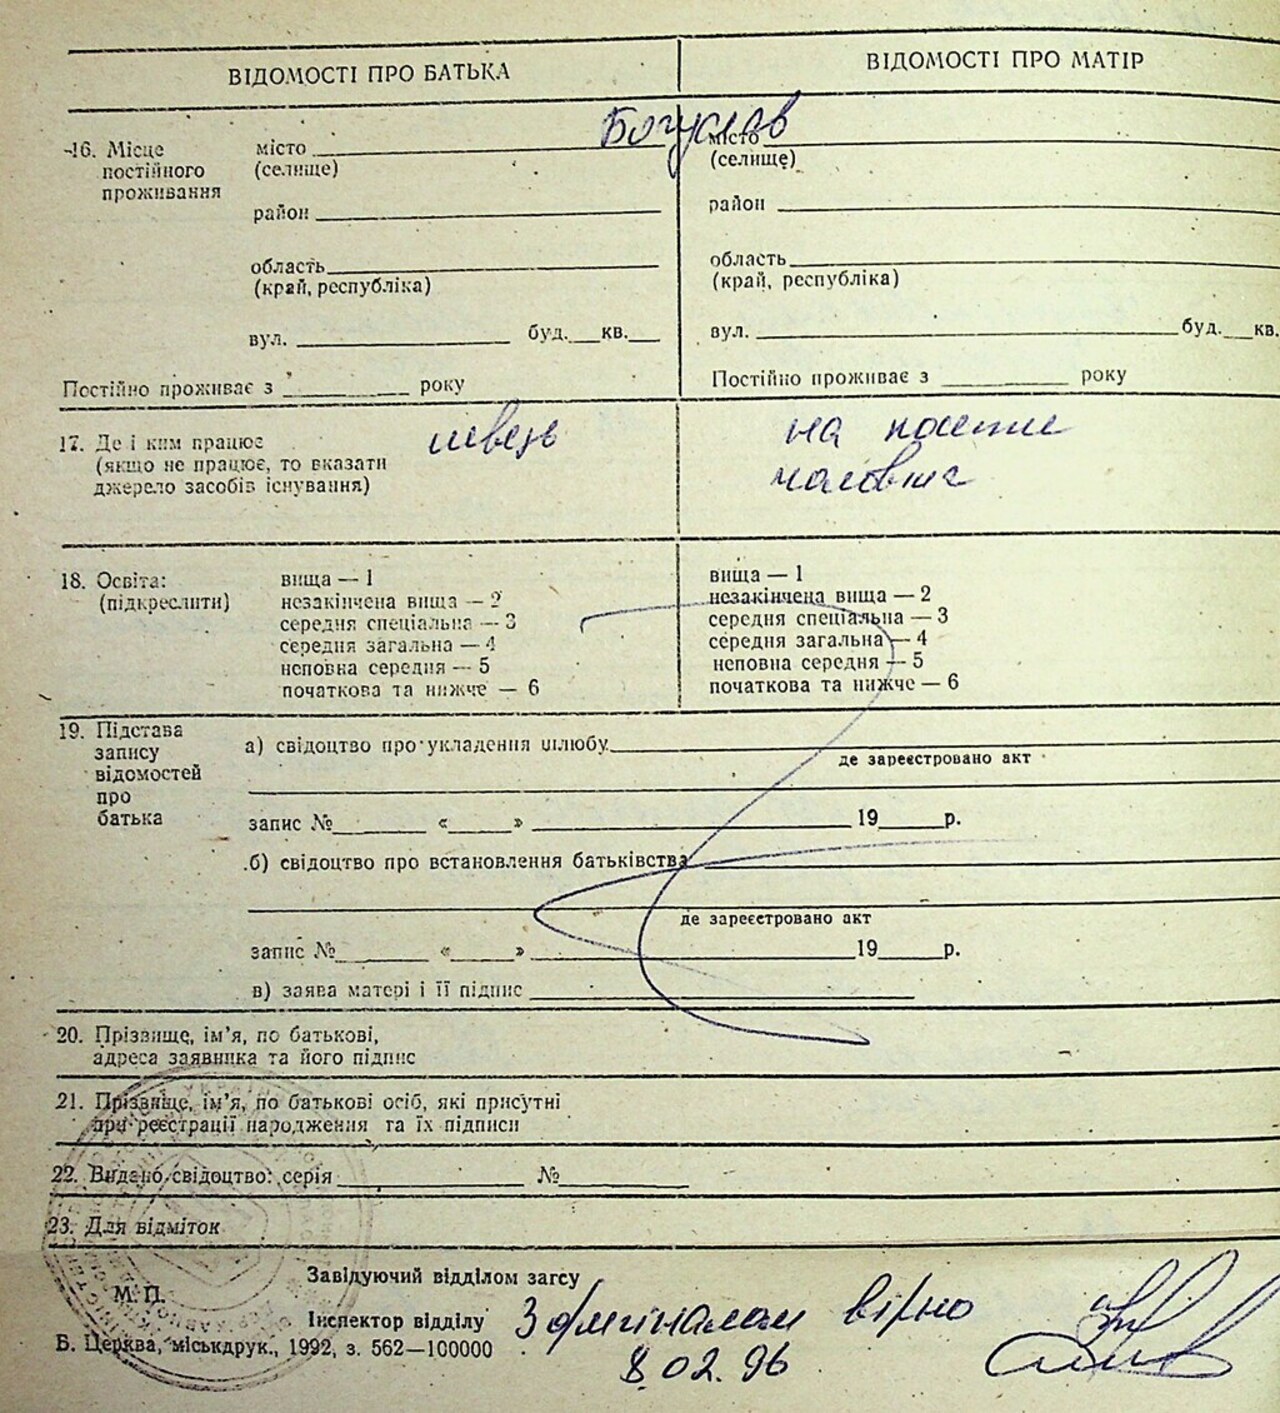 ВІДОМОСТІ ПРО БАТЬКА
ВІДОМОСТІ ПРО МАТІР
Богуслав
16. Місце постійного проживання
місто
(селище)
район
область
(край, республіка)
вул. буд. кв.
місто
(селище)
район
область
(край, республіка)
вул. буд. кв.
Постійно проживає з року
Постійно проживає з року
17. Де і ким працює
(якщо не працює, то вказати
джерело засобів існування)
швець
на
18. Освіта:
(підкреслити)
вища — 1
незакінчена вища — 2
середня спеціальна — 3
середня загальна — 4
неповна середня — 5
початкова та нижче — 6
вища — 1
незакінчена вища — 2
середня спеціальна — 3
середня загальна — 4
неповна середня — 5
початкова та нижче — 6
19. Підстава
запису
відомостей
про
батька
а) свідоцтво про укладення шлюбу
де зареєстровано акт
запис № « » 19 р.
б) свідоцтво про встановлення батьківства
де зареєстровано акт
запис № « » 19 р.
в) заява матері і її підпис
20. Прізвище, ім'я, по батькові,
адреса заявника та його підпис
21. Прізвище, ім'я, по батькові осіб, які присутні
при реєстрації народження та їх підписи
22. Видано свідоцтво: серія №
23. Для відміток
Завідуючий відділом загсу
М. П.
Інспектор відділу
З оригіналом вірно
Б. Церква, міськдрук., 1992, з. 562—100000
8.02.96